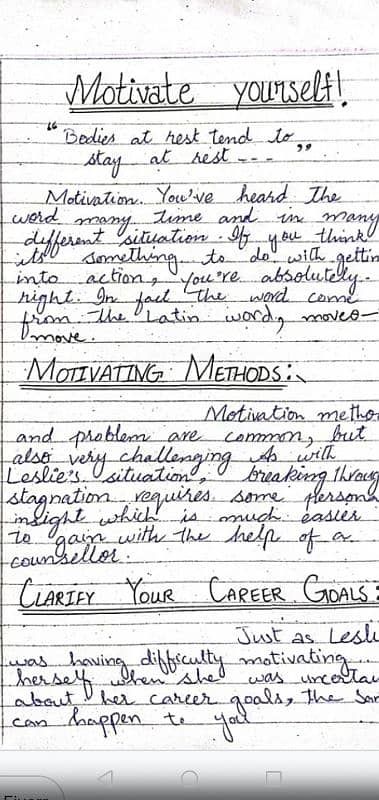 Motivate yourself!
"Bodies at rest tend to
stay at rest ---"
Motivation. You've heard The
word many time and in many
different situation. If you think
its something to do with gettin
into action, You're absolutely
right. In fact the word come
from the Latin word, moveo-
move.
MOTIVATING METHODS:
Motivation metho
and problem are common, but
also very challenging As with
Leslie's situation, breaking throug
stagnation requires some persona
insight which is much easier
To gain with the help of a
counsellor.
CLARIFY YOUR CAREER GOALS:
Just as Lesli
was having difficulty motivating
herself when she was uncertai
about her career goals, the sam
can happen to you